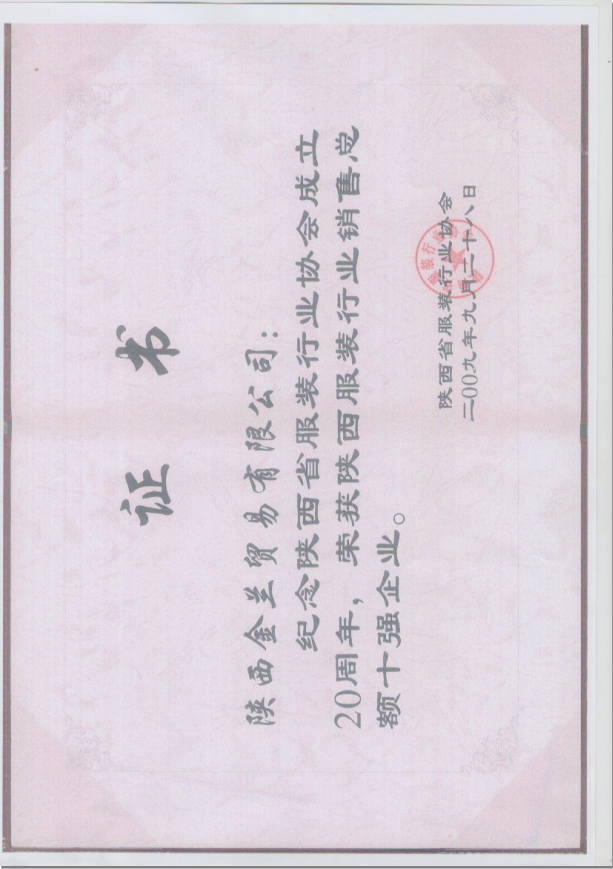 证书
陕西金兰贸易有限公司：
纪念陕西省服装行业协会成立
20周年，荣获陕西服装行业销售总
额十强企业。
陕西省服装行业协会
二00九年九月二十八日